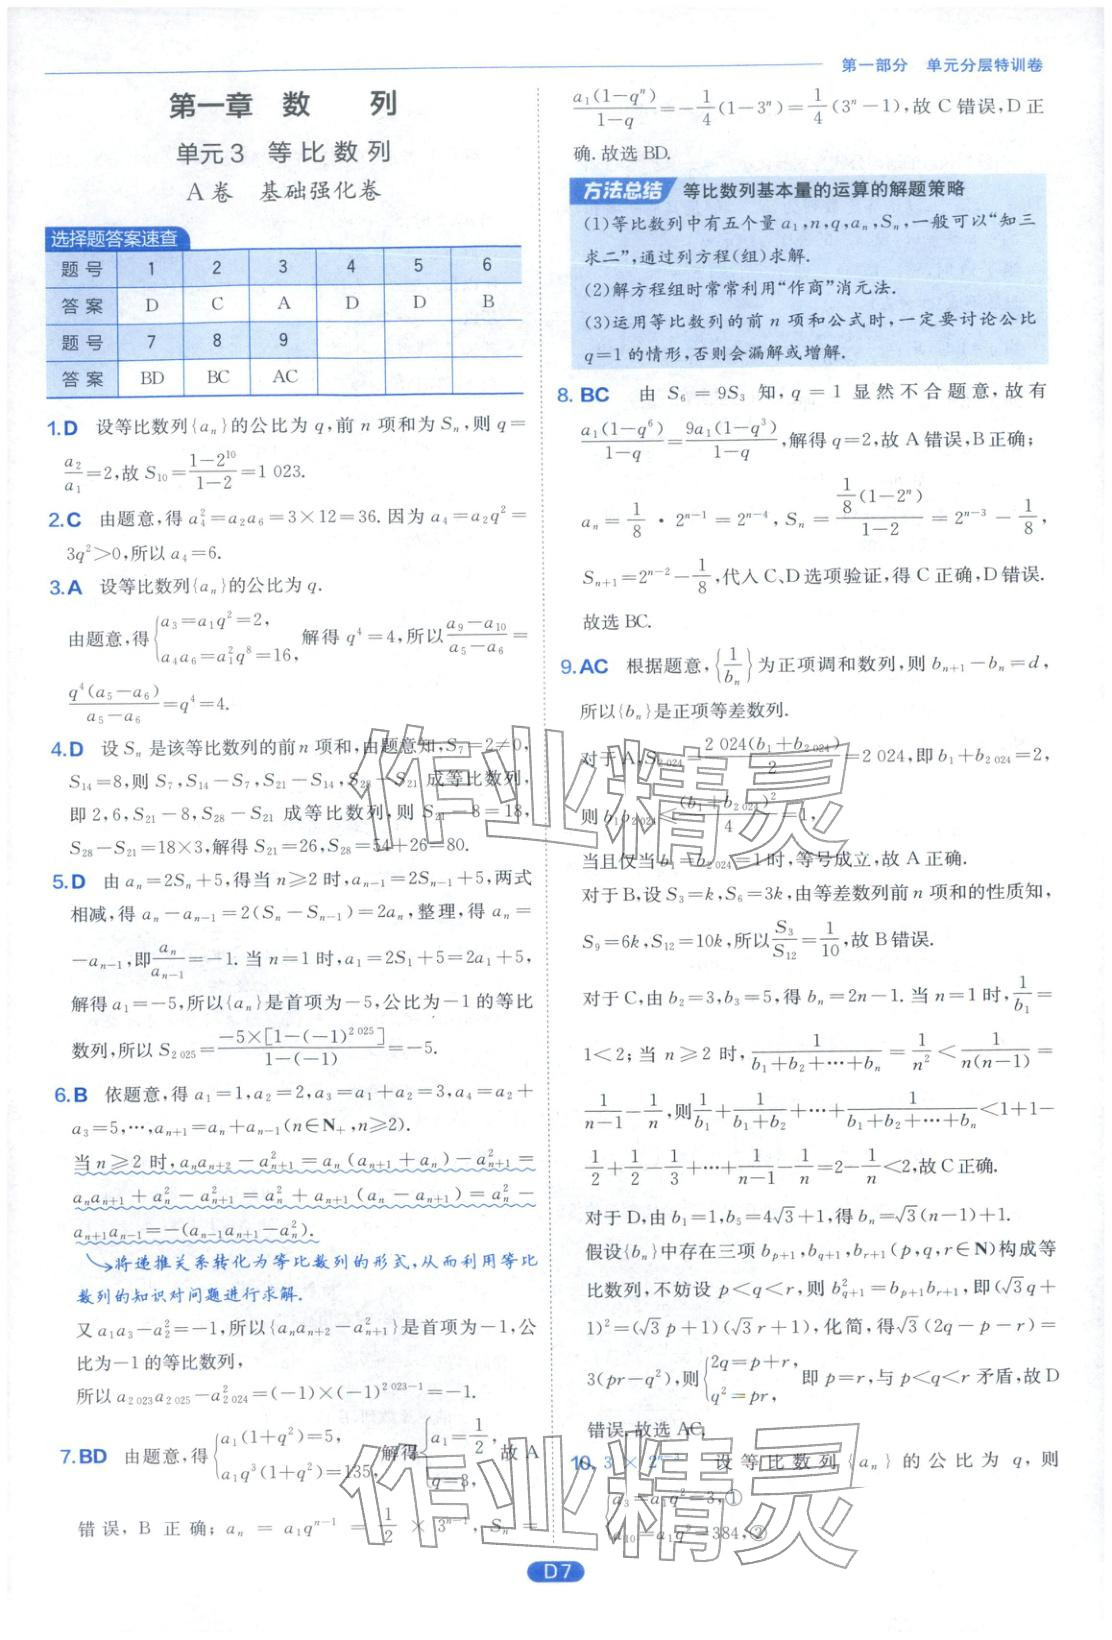 第一部分 单元分层特训卷
第一章 数 列
单元3 等比数列
A卷 基础强化卷
选择题答案速查
题号 1 2 3 4 5 6
答案 D C A D D B
题号 7 8 9
答案 BD BC AC
1.D 设等比数列{aₙ}的公比为q,前n项和为Sₙ,则q=
a₂/a₁=2,故S₁₀=(1-2¹⁰)/(1-2)=1 023.
2.C 由题意,得a₄²=a₂a₆=3×12=36.因为a₄=a₂q²=
3q²>0,所以a₄=6.
3.A 设等比数列{aₙ}的公比为q.
由题意,得{a₃=a₁q²=2, a₄a₆=a₁²q⁸=16, 解得q⁴=4,所以(a₉-a₁₀)/(a₅-a₆)=
q⁴(a₅-a₆)/(a₅-a₆)=q⁴=4.
4.D 设Sₙ是该等比数列的前n项和,由题意知,S₇=2≠0,
S₁₄=8,则S₇,S₁₄-S₇,S₂₁-S₁₄,S₂₈-S₂₁成等比数列,
即2,6,S₂₁-8,S₂₈-S₂₁成等比数列,则S₂₁-8=18,
S₂₈-S₂₁=18×3,解得S₂₁=26,S₂₈=54+26=80.
5.D 由aₙ=2Sₙ+5,得当n≥2时,aₙ₋₁=2Sₙ₋₁+5,两式
相减,得aₙ-aₙ₋₁=2(Sₙ-Sₙ₋₁)=2aₙ,整理,得aₙ=
-aₙ₋₁,即aₙ/aₙ₋₁=-1.当n=1时,a₁=2S₁+5=2a₁+5,
解得a₁=-5,所以{aₙ}是首项为-5,公比为-1的等比
数列,所以S₂ ₀₂₅=-5×[1-(-1)² ⁰²⁵]/(1-(-1))=-5.
6.B 依题意,得a₁=1,a₂=2,a₃=a₁+a₂=3,a₄=a₂+
a₃=5,…,aₙ₊₁=aₙ+aₙ₋₁(n∈N₊,n≥2).
当n≥2时,aₙaₙ₊₂-aₙ₊₁²=aₙ(aₙ₊₁+aₙ)-aₙ₊₁²=
aₙaₙ₊₁+aₙ²-aₙ₊₁²=aₙ²+aₙ₊₁(aₙ-aₙ₊₁)=aₙ²-
aₙ₊₁aₙ₋₁=-(aₙ₋₁aₙ₊₁-aₙ²).
将递推关系转化为等比数列的形式,从而利用等比
数列的知识对问题进行求解.
又a₁a₃-a₂²=-1,所以{aₙaₙ₊₂-aₙ₊₁²}是首项为-1,公
比为-1的等比数列,
所以a₂ ₀₂₃a₂ ₀₂₅-a₂ ₀₂₄²=(-1)×(-1)² ⁰²³⁻¹=-1.
7.BD 由题意,得{a₁(1+q²)=5, a₁q³(1+q²)=135, 解得{a₁=1/2, q=3, 故A
错误,B正确;aₙ=a₁qⁿ⁻¹=1/2×3ⁿ⁻¹,Sₙ=
a₁(1-qⁿ)/(1-q)=-1/4(1-3ⁿ)=1/4(3ⁿ-1),故C错误,D正
确.故选BD.
方法总结 等比数列基本量的运算的解题策略
(1)等比数列中有五个量a₁,n,q,aₙ,Sₙ,一般可以“知三
求二”,通过列方程(组)求解.
(2)解方程组时常常利用“作商”消元法.
(3)运用等比数列的前n项和公式时,一定要讨论公比
q=1的情形,否则会漏解或增解.
8.BC 由S₆=9S₃知,q=1显然不合题意,故有
a₁(1-q⁶)/(1-q)=9a₁(1-q³)/(1-q),解得q=2,故A错误,B正确;
aₙ=1/8·2ⁿ⁻¹=2ⁿ⁻⁴,Sₙ=1/8(1-2ⁿ)/(1-2)=2ⁿ⁻³-1/8,
Sₙ₊₁=2ⁿ⁻²-1/8,代入C、D选项验证,得C正确,D错误.
故选BC.
9.AC 根据题意,{1/bₙ}为正项调和数列,则bₙ₊₁-bₙ=d,
所以{bₙ}是正项等差数列.
对于A,S₂ ₀₂₄=2 024(b₁+b₂ ₀₂₄)/2=2 024,即b₁+b₂ ₀₂₄=2,
则b₁b₂ ₀₂₄≤(b₁+b₂ ₀₂₄)²/4=1,
当且仅当b₁=b₂ ₀₂₄=1时,等号成立,故A正确.
对于B,设S₃=k,S₆=3k,由等差数列前n项和的性质知,
S₉=6k,S₁₂=10k,所以S₃/S₁₂=1/10,故B错误.
对于C,由b₂=3,b₃=5,得bₙ=2n-1.当n=1时,1/b₁=
1<2;当n≥2时,1/(b₁+b₂+…+bₙ)=1/n²<1/(n(n-1))=
1/(n-1)-1/n,则1/b₁+1/(b₁+b₂)+…+1/(b₁+b₂+…+bₙ)<1+1-
1/2+1/2-1/3+…+1/(n-1)-1/n=2-1/n<2,故C正确.
对于D,由b₁=1,b₅=4√3+1,得bₙ=√3(n-1)+1.
假设{bₙ}中存在三项bₚ₊₁,b_{q+1},bᵣ₊₁(p,q,r∈N)构成等
比数列,不妨设p<q<r,则b_{q+1}²=bₚ₊₁bᵣ₊₁,即(√3q+
1)²=(√3p+1)(√3r+1),化简,得√3(2q-p-r)=
3(pr-q²),则{2q=p+r, q²=pr, 即p=r,与p<q<r矛盾,故D
错误.故选AC.
10. 3×2ⁿ⁻³ 设等比数列{aₙ}的公比为q,则
{a₃=a₁q²=3,① a₁₀=a₁q⁹=384,②
D7
作业精灵
作业精灵